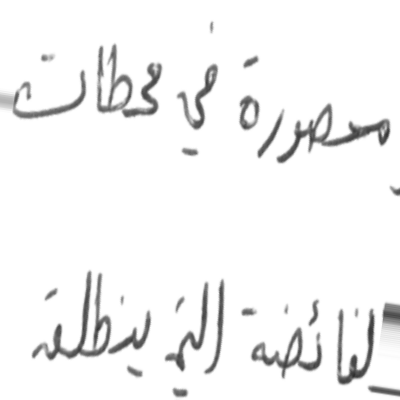 محصورة في محطات
الفائضة التي ينطلق